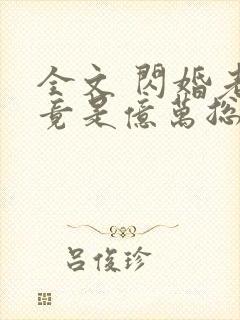 全文 閃婚老
竟是億萬
吕俊珍